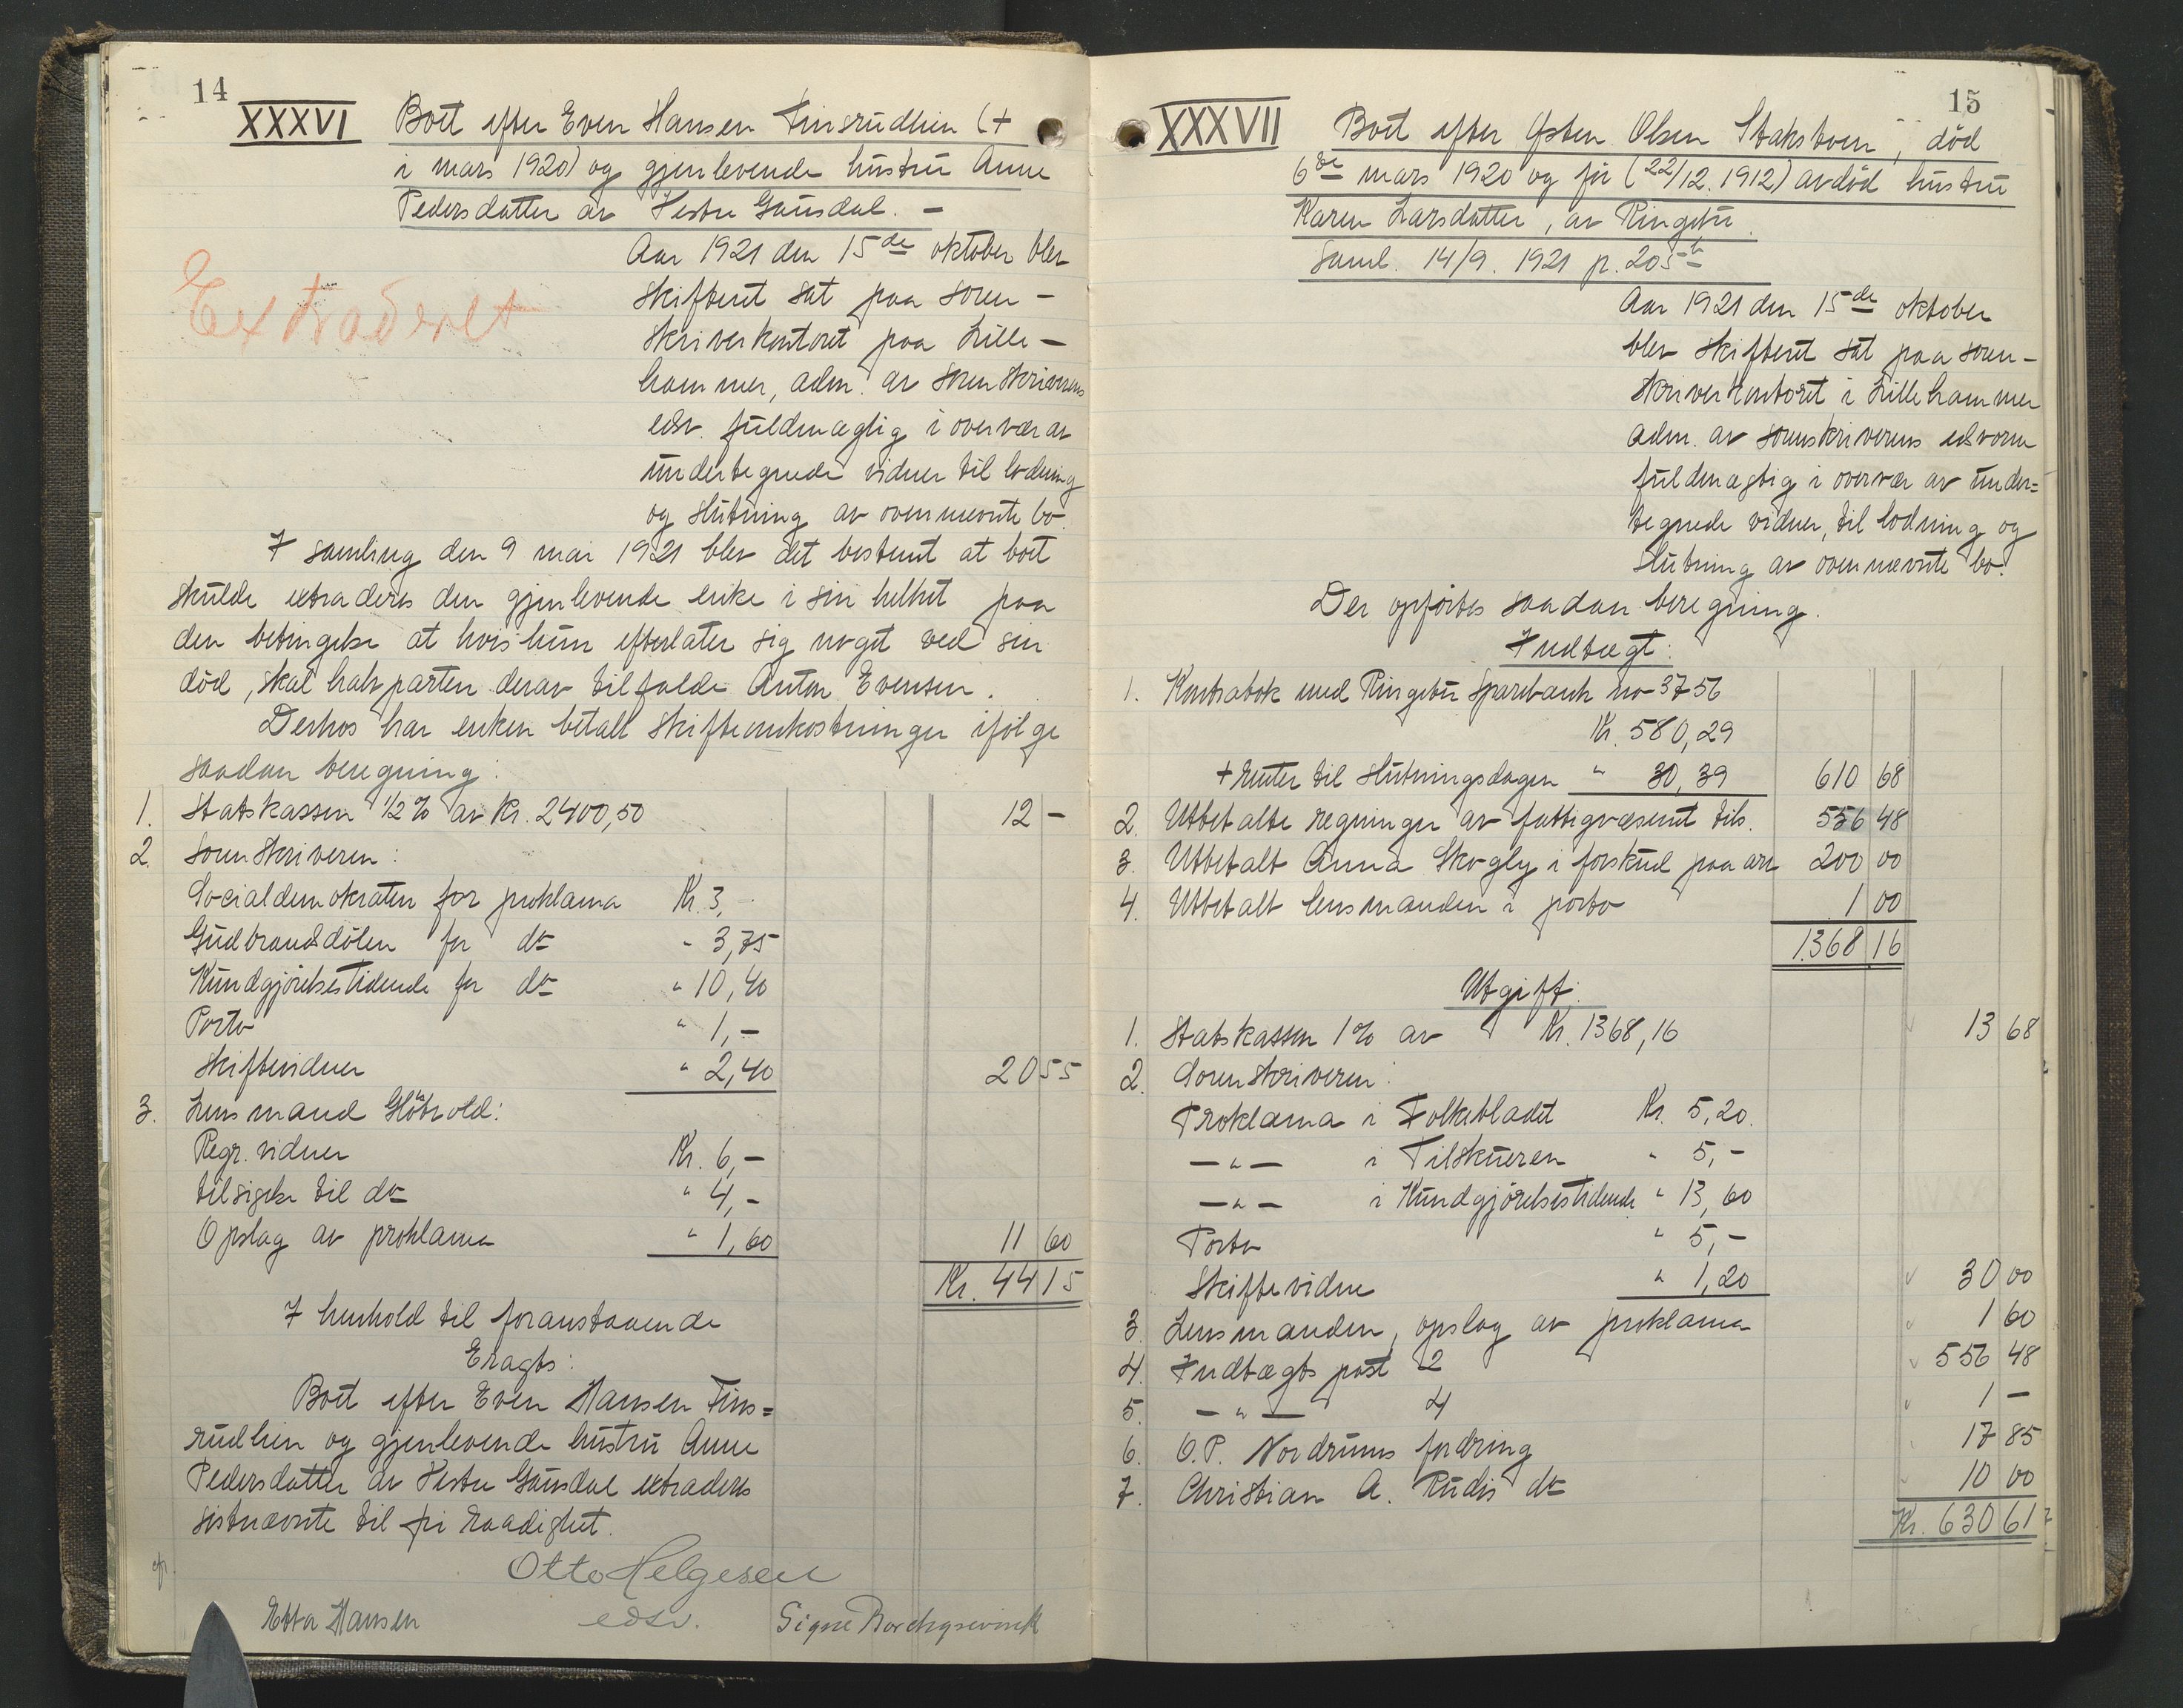 14
XXXVI Boet efter Even Hansen Finsrudlien (+
i mars 1920) og gjenlevende hustru Anne
Pedersdatter av Vestre Gausdal. –
Extraderet
Aar 1921 den 15de oktober blev
skifteret sat paa soren-
skriverkontoret paa Lille-
hammer, adm. av sorenskriverens
edsv. fuldmægtig i overvær av
undertegnede vidner til lodning
og slutning av ovennævnte bo.
I samling den 9 mai 1921 blev det bestemt at boet
skulde extraderes den gjenlevende enke i sin helhet paa
den betingelse at hvis hun efterlater sig noget ved sin
død, skal halvparten derav tilfalde Anton Evensen.
Derhos har enken betalt skifteomkostninger ifølge
saadan beregning:
1. Statskassen 1/2 % av Kr. 2400,50 12 –
2. Sorenskriveren:
Socialdemokraten for proklama Kr. 3,–
Gudbrandsdølen for do " 3,75
Kundgjørelsestidende for do " 10,40
Porto " 1,–
Skiftevidner " 2,40 20 55
3. Lensmand Glørvold:
Regr. vidner Kr. 6,–
tilsigelse til do " 4,–
Opslag av proklama " 1,60 11 60
Kr. 44 15
I henhold til foranstaaende
Eragts:
Boet efter Even Hansen Fins=
rudlien og gjenlevende hustru Anne
Pedersdatter av Vestre Gausdal extraderes
sistnævnte til fri raadighet.
Otto Helgesen
edsv.
Etta Hansen Signe Borchgrevink
15
XXXVII Boet efter Østen Olsen Stakstoen, død
6de mars 1920 og før (22/12. 1912) avdød hustru
Karen Larsdatter, av Ringebu.
Saml. 14/9. 1921 p. 205b
Aar 1921 den 15de oktober
blev skifteret sat paa soren-
skriverkontoret i Lillehammer
adm. av sorenskriverens edsvorne
fuldmægtig i overvær av under=
tegnede vidner, til lodning og
slutning av ovennævnte bo.
Der opførtes saadan beregning.
Indtægt:
1. Kontrabok med Ringebu Sparebank no 3756
Kr. 580,29
+ renter til slutningsdagen " 30,39 610 68
2. Utbetalte regninger av fattigvæsenet tils. 556 48
3. Utbetalt Anna Skogly i forskud paa arv 200 00
4. Utbetalt lensmanden i porto 1 00
1368 16
Utgift:
1. Statskassen 1% av Kr. 1368,16 13 68
2. Sorenskriveren:
Proklama i Folkebladet Kr. 5,20.
– " – i Tilskueren " 5,–
– " – i Kundgjørelsestidende " 13,60
Porto " 5,–
Skiftevidne " 1,20 30 00
3. Lensmanden, opslag av proklama 1 60
4. Indtægts post 2 556 48
5. – " – 4 1 –
6. O.P. Nordrums fordring 17 85
7. Christian A. Rudis do 10 00
Kr. 630 61